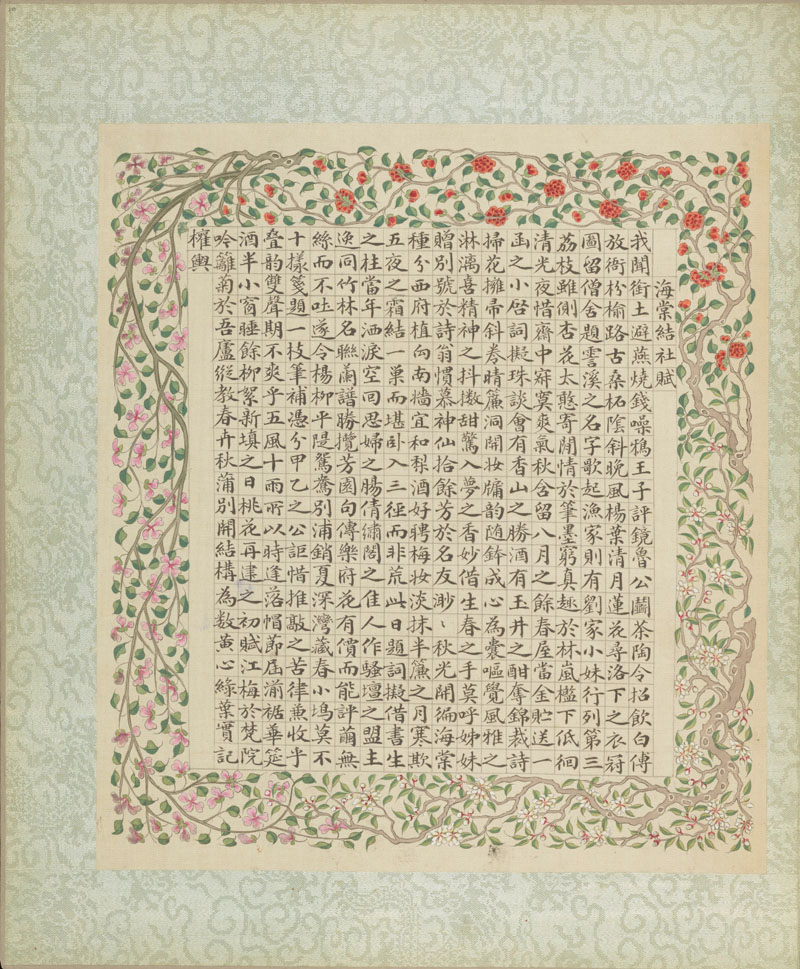 海棠結社賦
我聞銜土避燕燒錢噪鴉王子評鏡魯公鬬茶陶令招飲白傅
放衙枌榆路古桑柘陰斜晚風楊葉清月蓮花尋洛下之衣冠
圖留僧舍題霅溪之名字歌起漁家則有劉家小妹行列第三
荔枝雖側杏花太憨寄閒情於筆墨窮真趣於林嵐檻下低徊
清光夜惜齋中寂寞爽氣秋含留八月之餘春屋當金貯送一
函之小啓詞擬珠談會有香山之勝酒有玉井之酣奪錦裁詩
掃花擁帚斜卷晴簾洞開妝牖韵隨鉢成心為囊嘔覺風雅之
淋漓喜精神之抖擻甜驚入夢之香妙借生春之手莫呼姊妹
贈別號於詩翁慣慕神仙拾餘芳於名友渺〻秋光開徧海棠
種分西府植向南墻宜和梨酒好聘梅妝淡抹半簾之月寒欺
五夜之霜結一巢而堪卧入三徑而非荒此日題詞擬借書生
之柱當年洒淚空回思婦之腸倩繡閣之佳人作騷壇之盟主
逸同竹林名聯蘭譜勝攬芳園句傳樂府花有債而能評繭無
絲而不吐遂令楊柳平隄鴛鴦別浦銷夏深灣藏春小塢莫不
十樣箋題一枝筆補憑分甲乙之公詎惜推敲之苦律兼收乎
疊韵雙聲期不爽乎五風十雨所以時逢落帽節屆湔裾華筵
酒半小窗睡餘柳絮新填之日桃花再建之初賦江梅於梵院
吟籬菊於吾廬縱教春卉秋蒲別開結構為數黃心綠葉實記
權輿